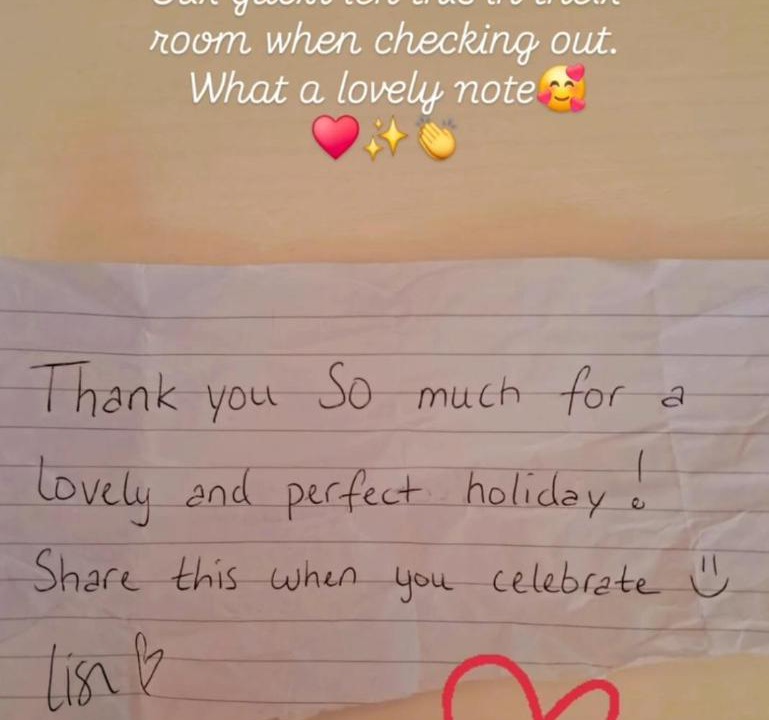 room when checking out.
What a lovely note🥰
❤️✨👏
Thank you So much for a
lovely and perfect holiday!
Share this when you celebrate :)
Lisa ♡